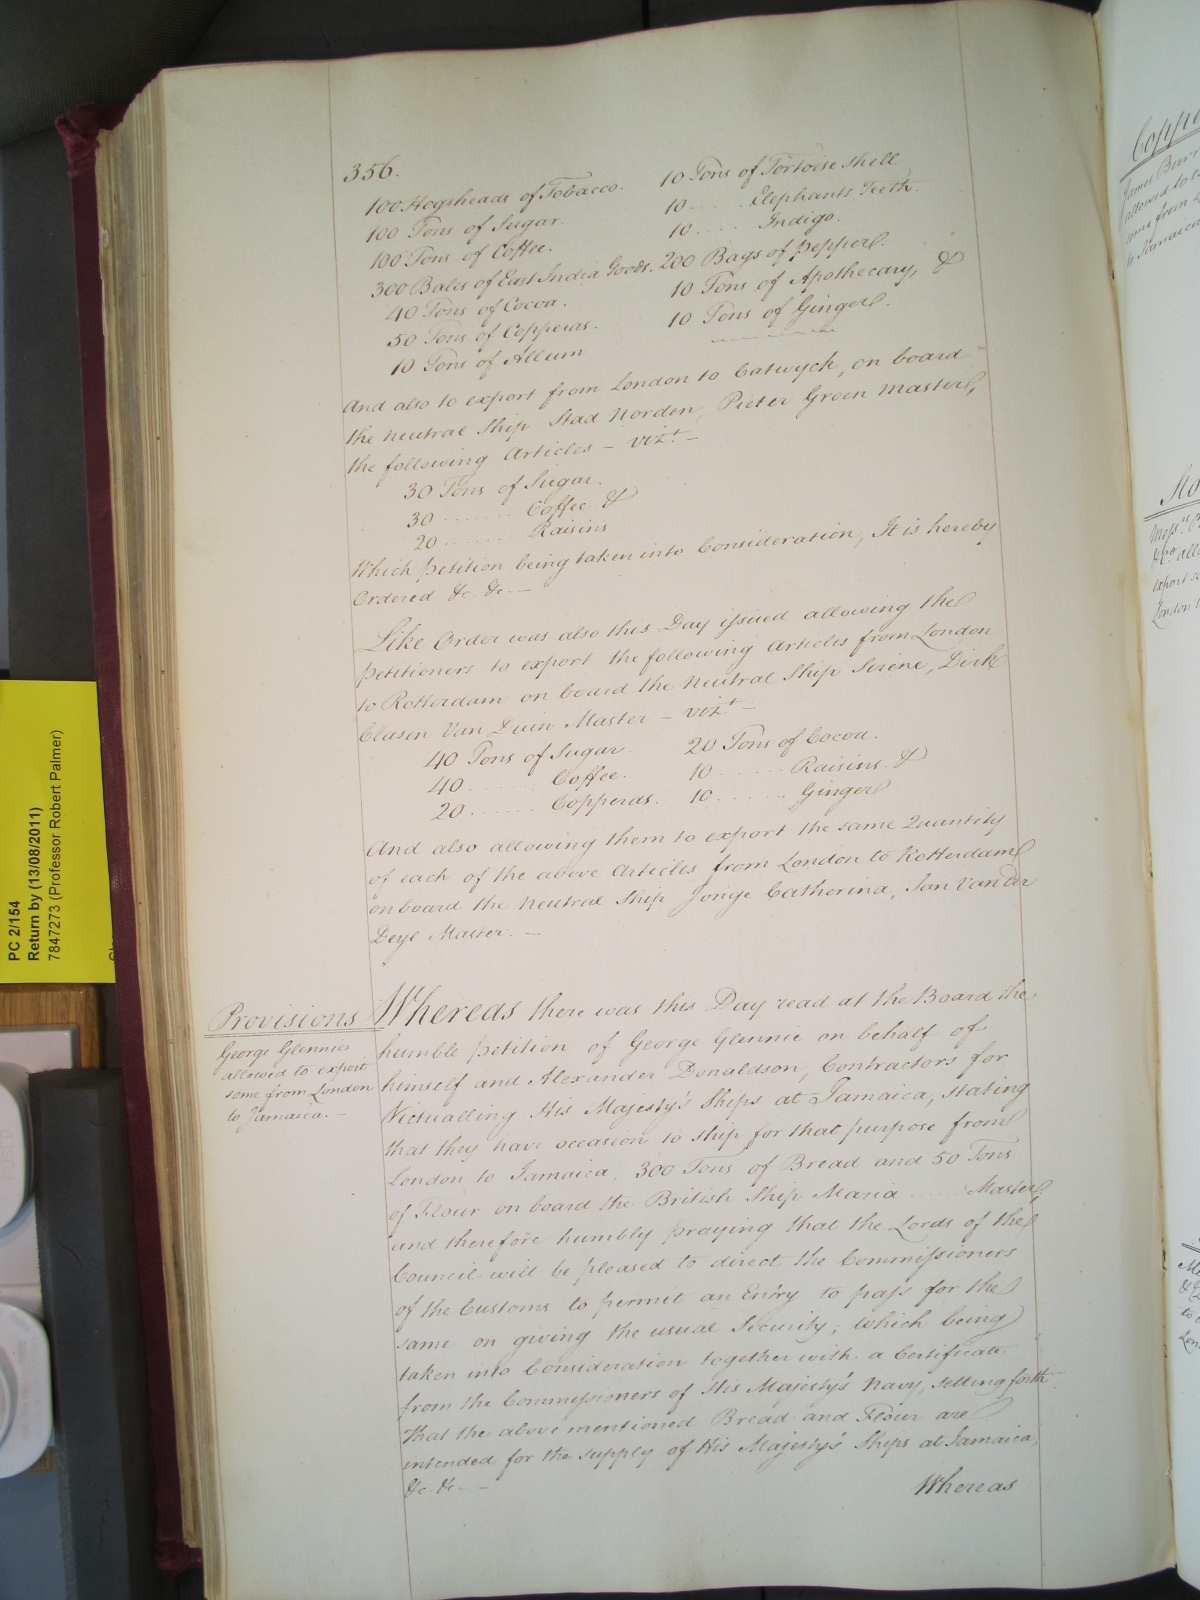 356.
100 Hogsheads of Tobacco.
100 Tons of Sugar.
100 Tons of Coffee.
300 Bales of East India Goods.
40 Tons of Cocoa.
50 Tons of Copperas.
10 Tons of Allum
10 Tons of Tortoise shell
10 ..... Elephants Teeth.
10 ..... Indigo.
200 Bags of Pepper.
10 Tons of Apothecary, &
10 Tons of Ginger.
And also to export from London to Catwyck, on board
the neutral Ship Stad Norden, Pieter Groen Master,
the following Articles – vizt –
30 Tons of Sugar.
30 ........ Coffee &
20 ........ Raisins
Which petition being taken into Consideration, It is hereby
Ordered &c. &c. –
Like Order was also this Day issued allowing the
Petitioners to export the following Articles from London
to Rotterdam on board the Neutral Ship Sirene, Dirk
Clasen Van Duin Master – vizt –
40 Tons of Sugar.
40 ........ Coffee.
20 ........ Copperas.
20 Tons of Cocoa.
10 ........ Raisins &
10 ........ Ginger
And also allowing them to export the same Quantity
of each of the above Articles from London to Rotterdam
on board the Neutral Ship Jonge Catherina, Jan Van der
Deyl Master. –
Provisions
George Glennie
allowed to export
some from London
to Jamaica. –
Whereas there was this Day read at the Board the
humble petition of George Glennie on behalf of
himself and Alexander Donaldson, Contractors for
Victualling His Majesty's Ships at Jamaica, stating
that they have occasion to ship for that purpose from
London to Jamaica, 300 Tons of Bread and 50 Tons
of Flour on board the British Ship Maria ...... Master,
and therefore humbly praying that the Lords of the
Council will be pleased to direct the Commissioners
of the Customs to permit an Entry to pass for the
same on giving the usual Security; Which being
taken into Consideration together with a Certificate
from the Commissioners of His Majesty's Navy, setting forth
that the above mentioned Bread and Flour are
intended for the supply of His Majesty's Ships at Jamaica,
&c. &c. –
Whereas
PC 2/154
Return by (13/08/2011)
7847273 (Professor Robert Palmer)
James
allowed to
some from
to Jamaica
Messrs
&Co. all
export
London